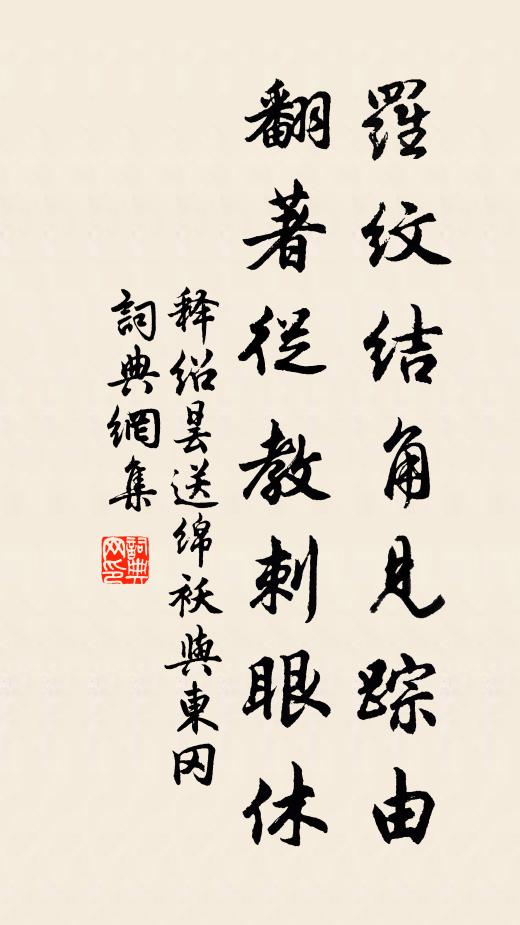 羅紋结角見踪由
翻著從教刺眼休
释绍曇送绵袄與東冈
詞典網集
詞典网印